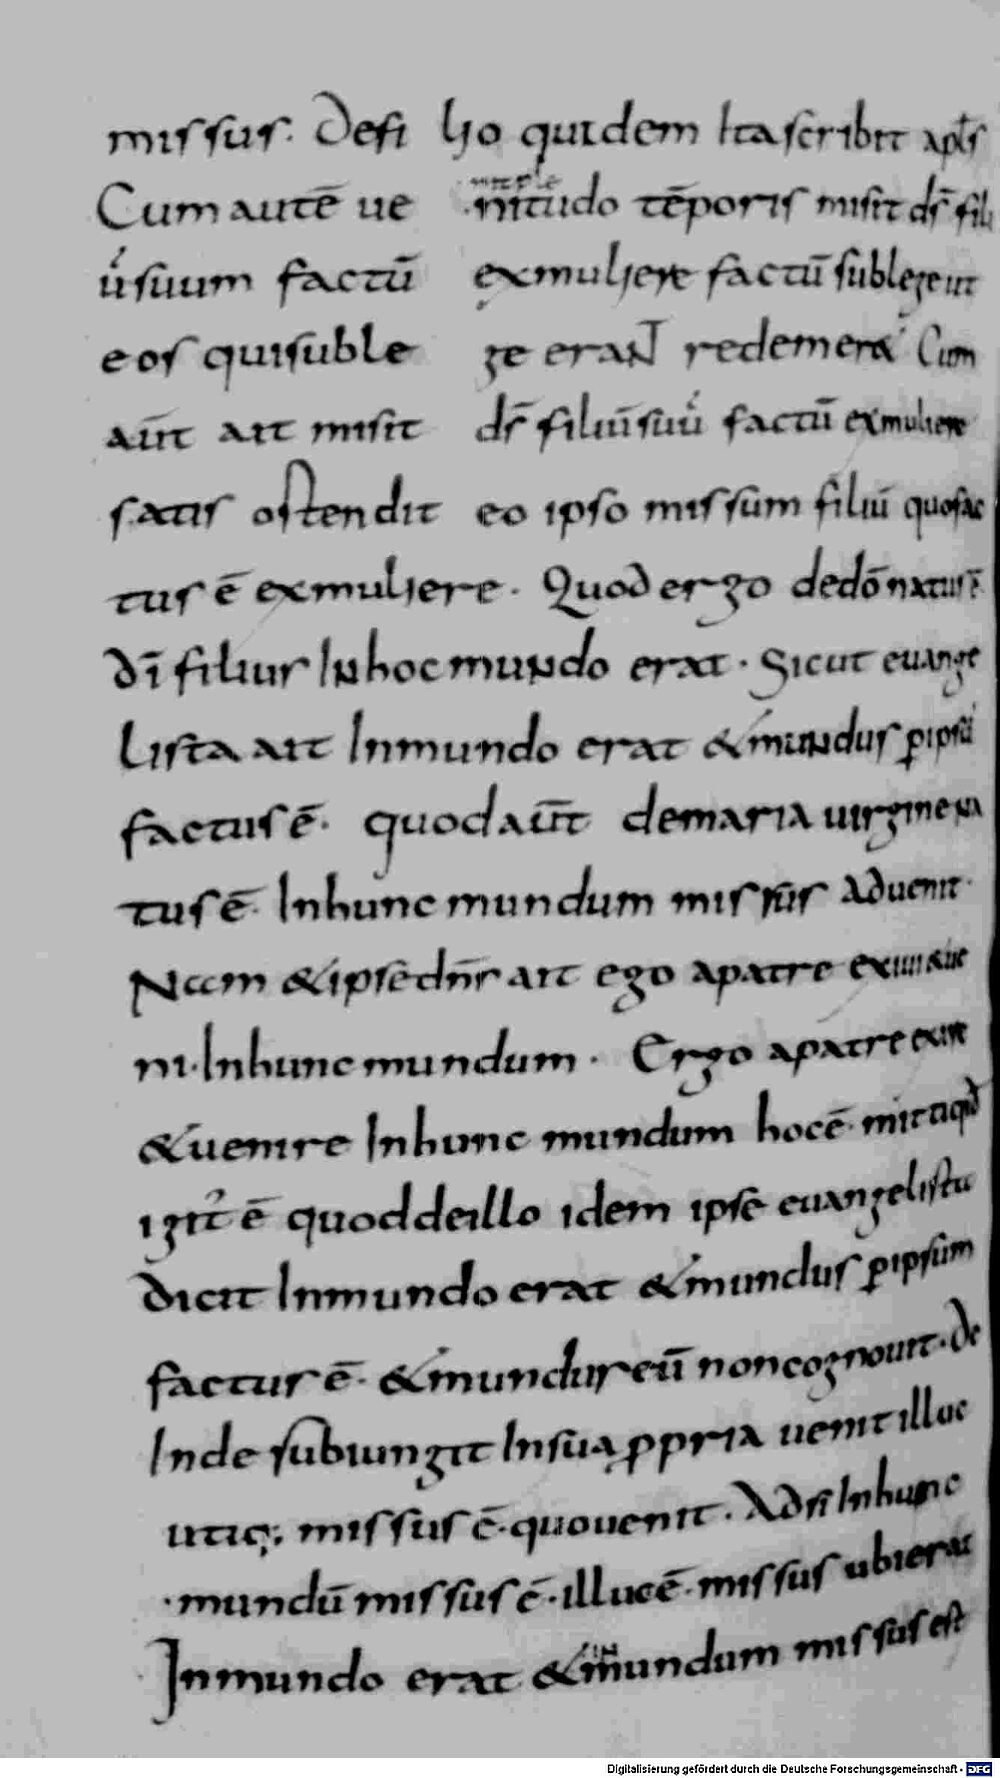 missus. Defi lio quidem Ita scribit apl̄s
Cum autē ue nitudo tē̄poris misit ds̄ fili
nit ple
ū suum factū ex muliere factū sub lege ut
eos qui sub le ge erant redemer&́ Cum
aūt ait misit ds̄ filiū suū factū ex muliere
satis ostendit eo ipso missum filiū quo fac
tus ē ex muliere. Quod ergo de dō natus ē
dī filius In hoc mundo erat. Sicut euange
lista ait In mundo erat & mundus ꝑ ipsū
factus ē. quod aūt de maria uirgine na
tus ē. In hunc mundum missus aduenit.
Nam & ipse dn̄s ait ego a patre exiui & ue
ni. In hunc mundum. Ergo a patre exire
& uenire In hunc mundum hoc ē. mitti qd̄
igit̉ ē quod de illo idem ipse euangelista
dicit In mundo erat & mundus ꝑ ipsum
factus ē. & mundus eū non cognouit. De
Inde subiungit In sua ꝓpria uenit illuc
utiq; missus ē. quo uenit. Ad si In hunc
.mundū missus ē. illuc ē. missus ubi erat
In mundo erat & mundum missus est
in